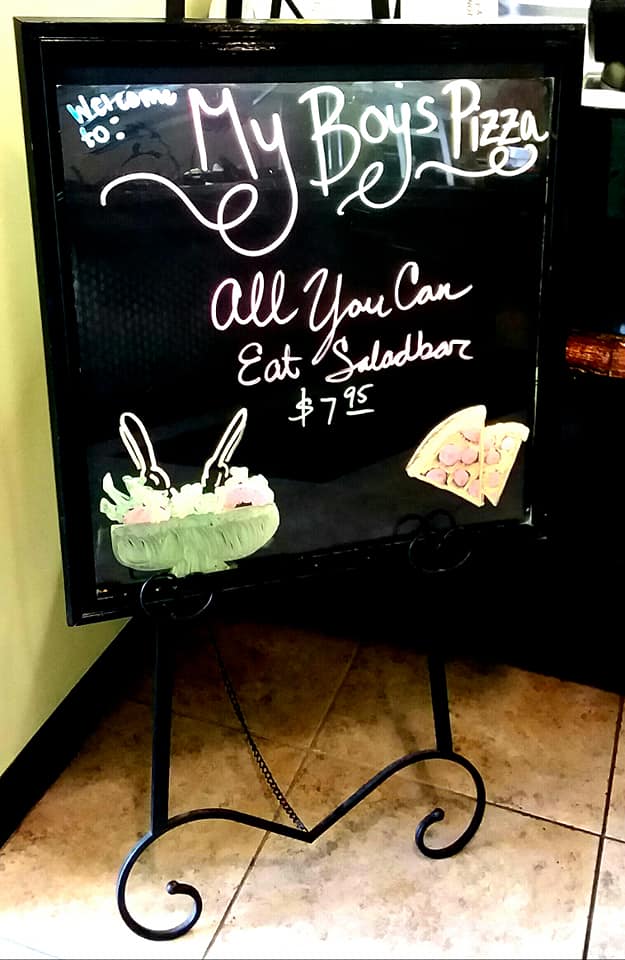 Welcome
to:
My Boy's Pizza
All You Can
Eat Saladbar
$7.95